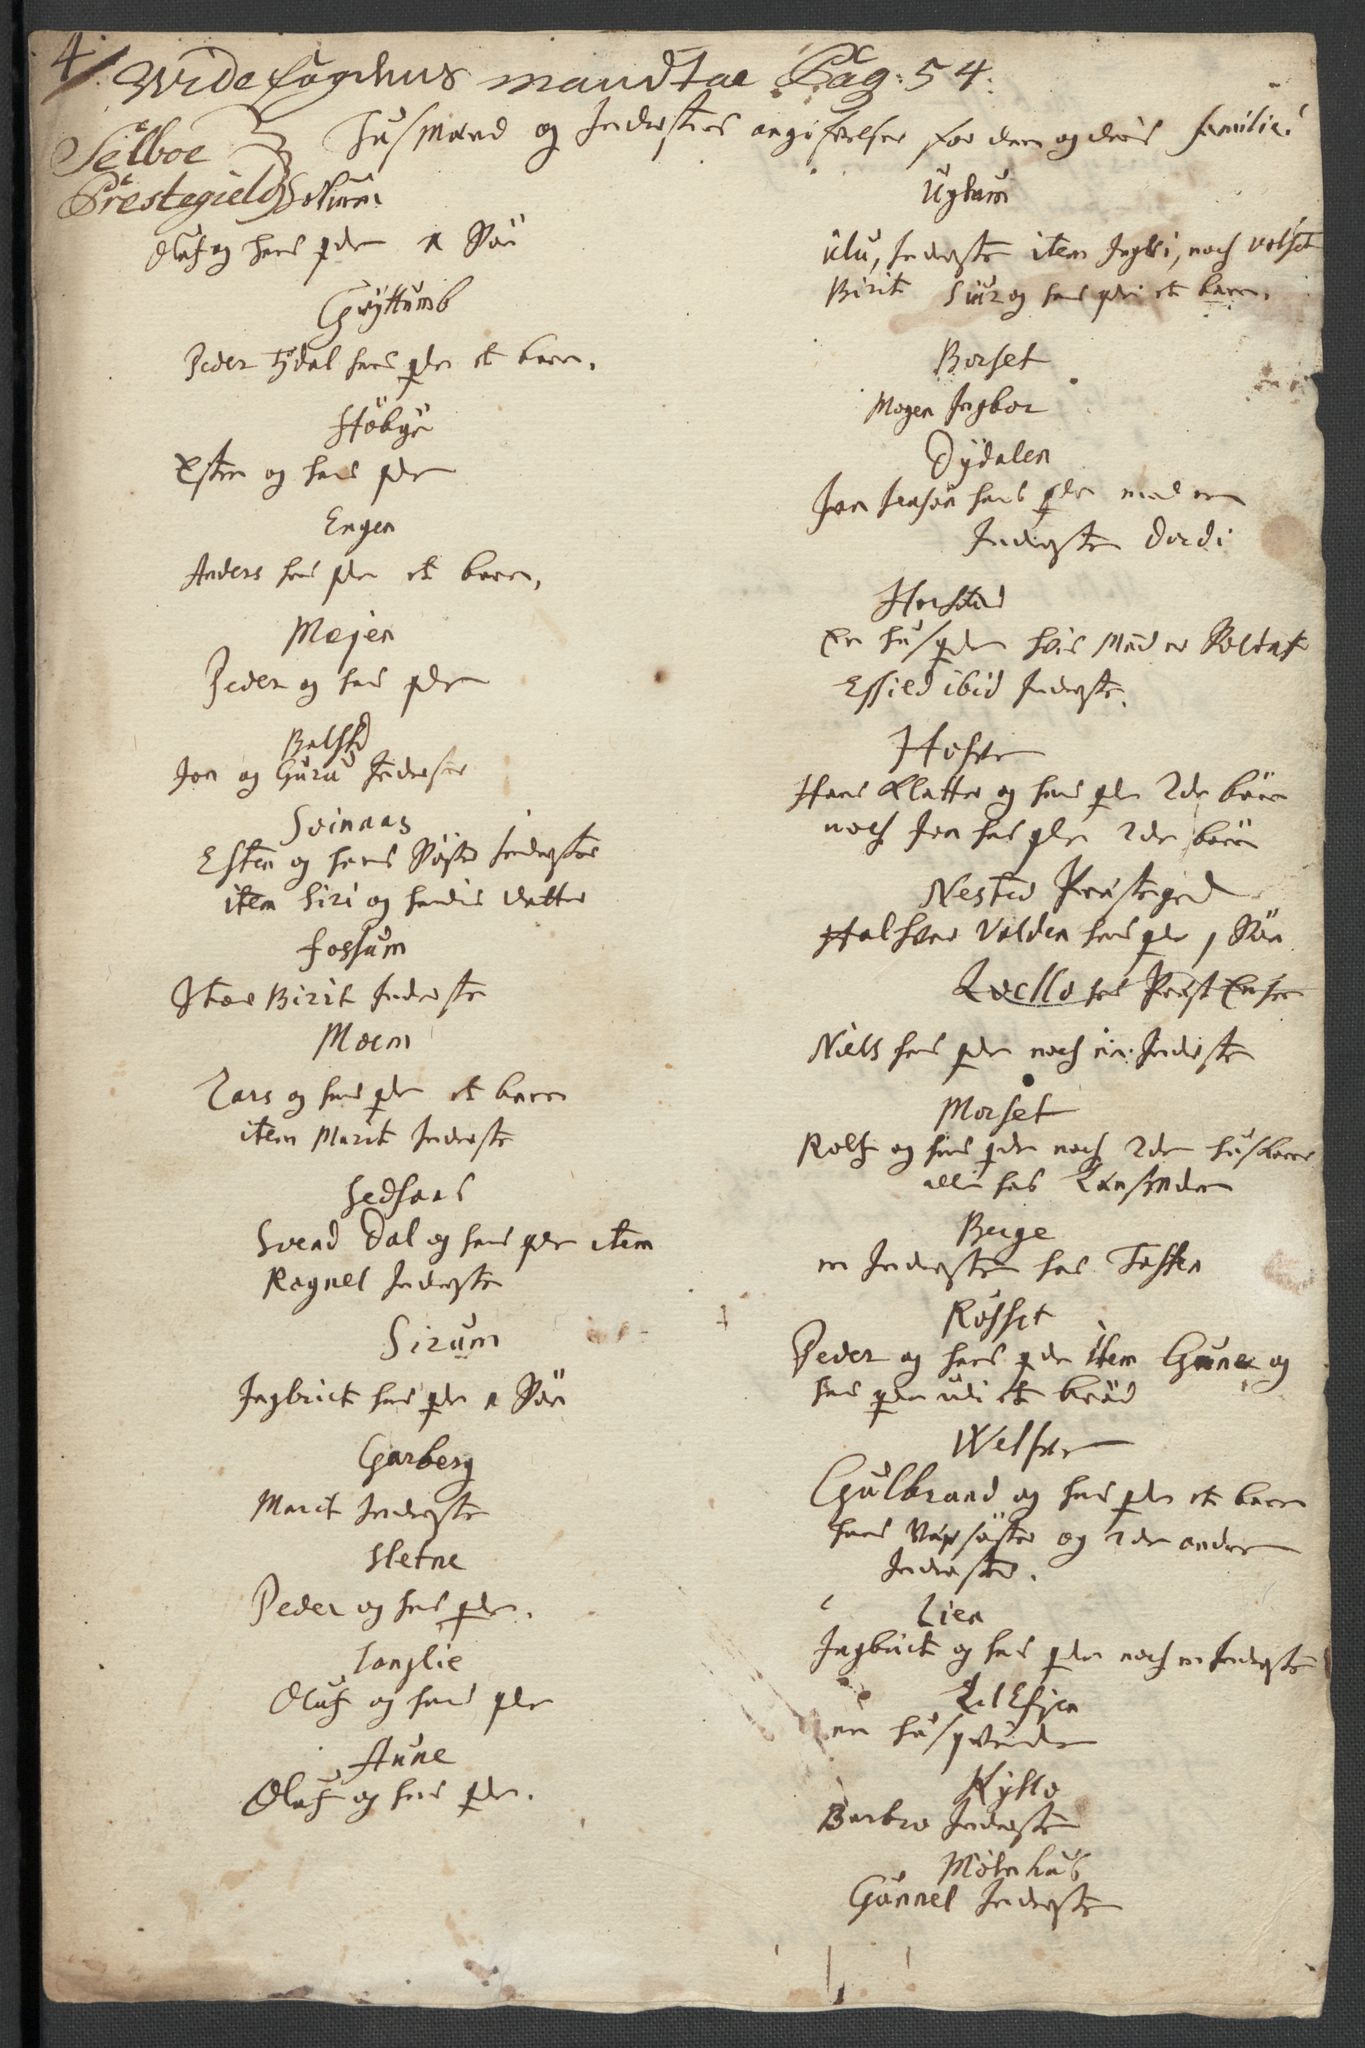 4/
Wide fogdens mandtal Pag: 54.
Selboe
Prestegield
Husmænd og Inderstes angifvelse for dem og deris familie
Solum
Oluf og hans qde 1 Søn
Grøttumb
Peder tÿdal hans qde et barn.
Høbÿe
Esten og hans qde
Engen
Anders hans qde et barn,
Mejen
Peder og hans qde
Balstd
Jon og Guru Inderster
Svinaas
Esten og hans Søster Inderster
item Siri og hendis datter
fossum
Birit Inderste
Moen
Lars og hans qde et barn
item Marit Inderste
Sedsaas
Svend Dal og hans qde item
Ragnel Inderste
Sirum
Ingbrict hans qde 1 Søn
Garberg
Marit Inderste
Sletne
Peder og hans qde.
Langlie
Oluf og hans qde
Aune
Oluf og hans qde.
Uglum
Inderste item Ingbri, noch
Birit og hans qde et barn.
Borset
Mogen Ingbor
Dÿdalen
Jon Jensøn hans qde med en
Inderste Dordi
Harstad
En husqde hvis Mand er Soldat
ibid Inderste.
Hofve
Hans Klatter og hans qde 2de børn
noch Jon hans qde 2de børn
Nestid Prestegrd
Halfvor Volden hans qde 1 Søn
hos Prest Enken
Niels hans qde noch en Inderste
Morset
Rolf og hans qde noch 2de
alle hos Lænsmden
Berge
en Inderste hos
Rosset
Peder og hans qde item Guner og
hans qde udi et brød
Welfve
Gulbrand og hans qde et barn
hans søster og 2de andre
Inderster.
Lien
Ingbrict og hans qde noch en Inderste
en husqvinde
Kÿllo
Barbro Inderste
Mölnhus
Gunnel Inderste